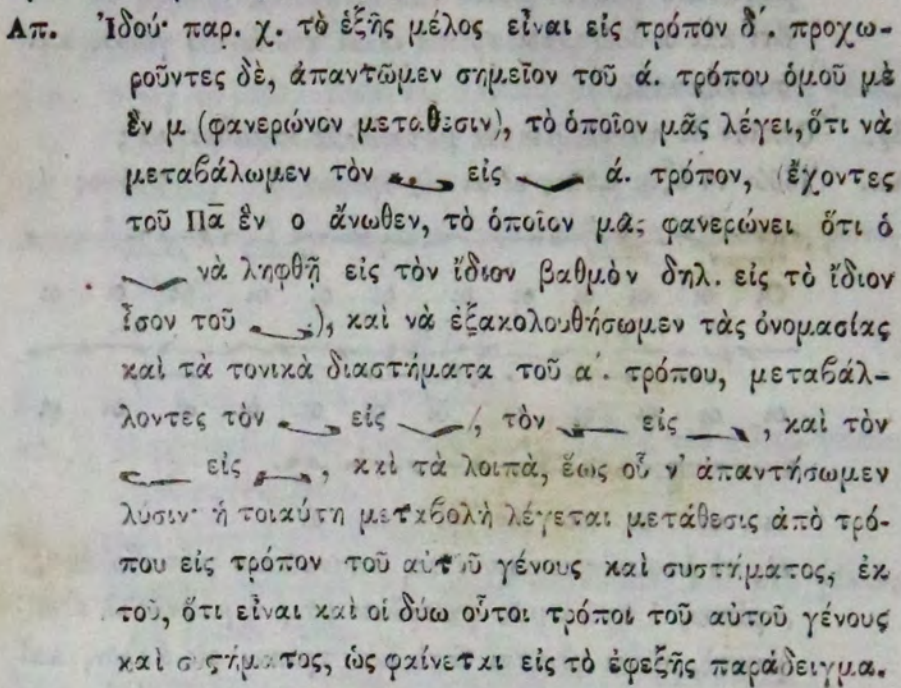 Απ. Ἰδού· παρ. χ. τὸ ἑξῆς μέλος εἶναι εἰς τρόπον δ΄. προχω-
ροῦντες δὲ, ἀπαντῶμεν σημεῖον τοῦ ά. τρόπου ὁμοῦ μὲ
ἓν μ (φανερώνον μετάθεσιν), τὸ ὁποῖον μᾶς λέγει, ὅτι νὰ
μεταβάλωμεν τὸν εἰς ά. τρόπον, (ἔχοντες
τοῦ Πᾱ ἓν ο ἄνωθεν, τὸ ὁποῖον μᾶς φανερώνει ὅτι ὁ
νὰ ληφθῇ εἰς τὸν ἴδιον βαθμὸν δηλ. εἰς τὸ ἴδιον
ἶσον τοῦ ), καὶ νὰ ἐξακολουθήσωμεν τὰς ὀνομασίας
καὶ τὰ τονικὰ διαστήματα τοῦ α΄. τρόπου, μεταβάλ-
λοντες τὸν εἰς , τὸν εἰς , καὶ τὸν
εἰς , κκὶ τὰ λοιπὰ, ἕως οὗ ν' ἀπαντήσωμεν
λύσιν· ἡ τοιαύτη μεταβολὴ λέγεται μετάθεσις ἀπὸ τρό-
που εἰς τρόπον τοῦ αὐτοῦ γένους καὶ συστήματος, ἐκ
τοῦ, ὅτι εἶναι καὶ οἱ δύω οὗτοι τρόποι τοῦ αὐτοῦ γένους
καὶ συστήματος, ὡς φαίνεται εἰς τὸ ἐφεξῆς παράδειγμα.